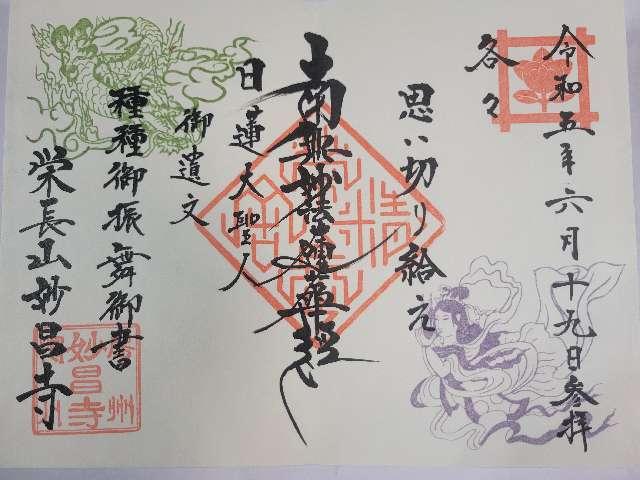 令和五年六月十九日参拝
各々
思い切り給え
南無妙法蓮華経
日蓮大聖人
御遺文
種種御振舞御書
栄長山妙昌寺
妙昌寺